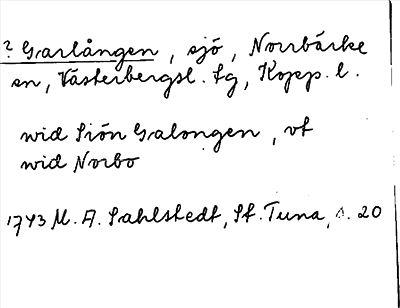 ? Garlången, sjö, Norrbärke
sn, Västerbergsl. fg, Kopp. l.
wid Siön Galongen, vt
wid Norbo
1743 M. A. Sahlstedt, St. Tuna, s. 20